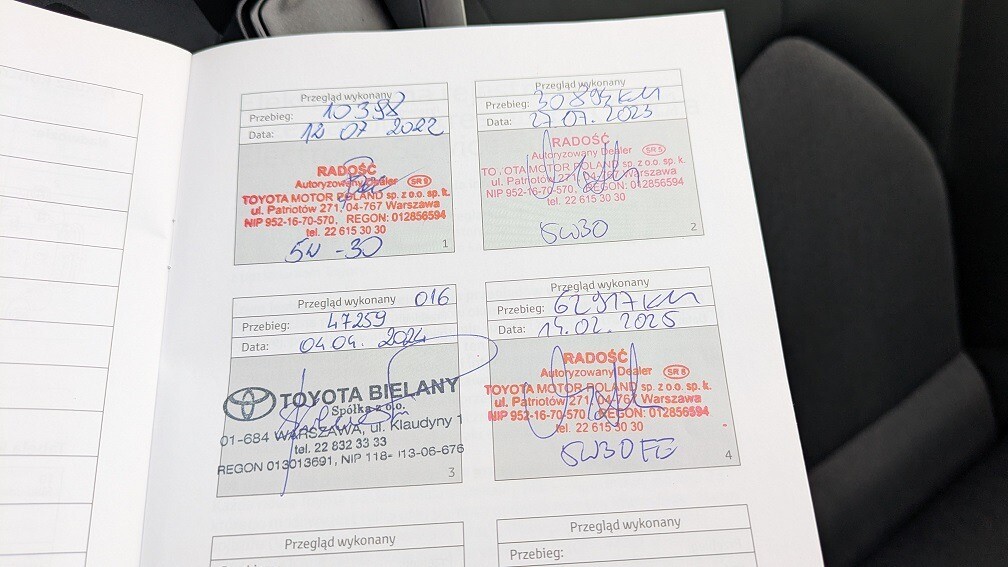 Przegląd wykonany
Przebieg: 10398
Data: 12 07 2022
RADOŚĆ
Autoryzowany Dealer SR 9
TOYOTA MOTOR POLAND sp. z o.o. sp. k.
ul. Patriotów 271, 04-767 Warszawa
NIP 952-16-70-570, REGON: 012856594
tel. 22 615 30 30
5W-30
1
Przegląd wykonany
Przebieg: 30894 KM
Data: 27.07. 2023
RADOŚĆ
Autoryzowany Dealer SR 5
TOYOTA MOTOR POLAND sp. z o.o. sp. k.
ul. Patriotów 271, 04-767 Warszawa
NIP 952-16-70-570, REGON: 012856594
tel. 22 615 30 30
5W30
2
Przegląd wykonany 016
Przebieg: 47259
Data: 04 04. 2024
TOYOTA BIELANY
Spółka z o.o.
01-684 WARSZAWA, ul. Klaudyny 1
tel. 22 832 33 33
REGON 013013691, NIP 118-113-06-676
3
Przegląd wykonany
Przebieg: 62917 KM
Data: 14.02. 2025
RADOŚĆ
Autoryzowany Dealer SR 8
TOYOTA MOTOR POLAND sp. z o.o. sp. k.
ul. Patriotów 271, 04-767 Warszawa
NIP 952-16-70-570 REGON: 012856594
tel. 22 615 30 30
5W30 FE
4
Przegląd wykonany
Przegląd wykonany
Przebieg: